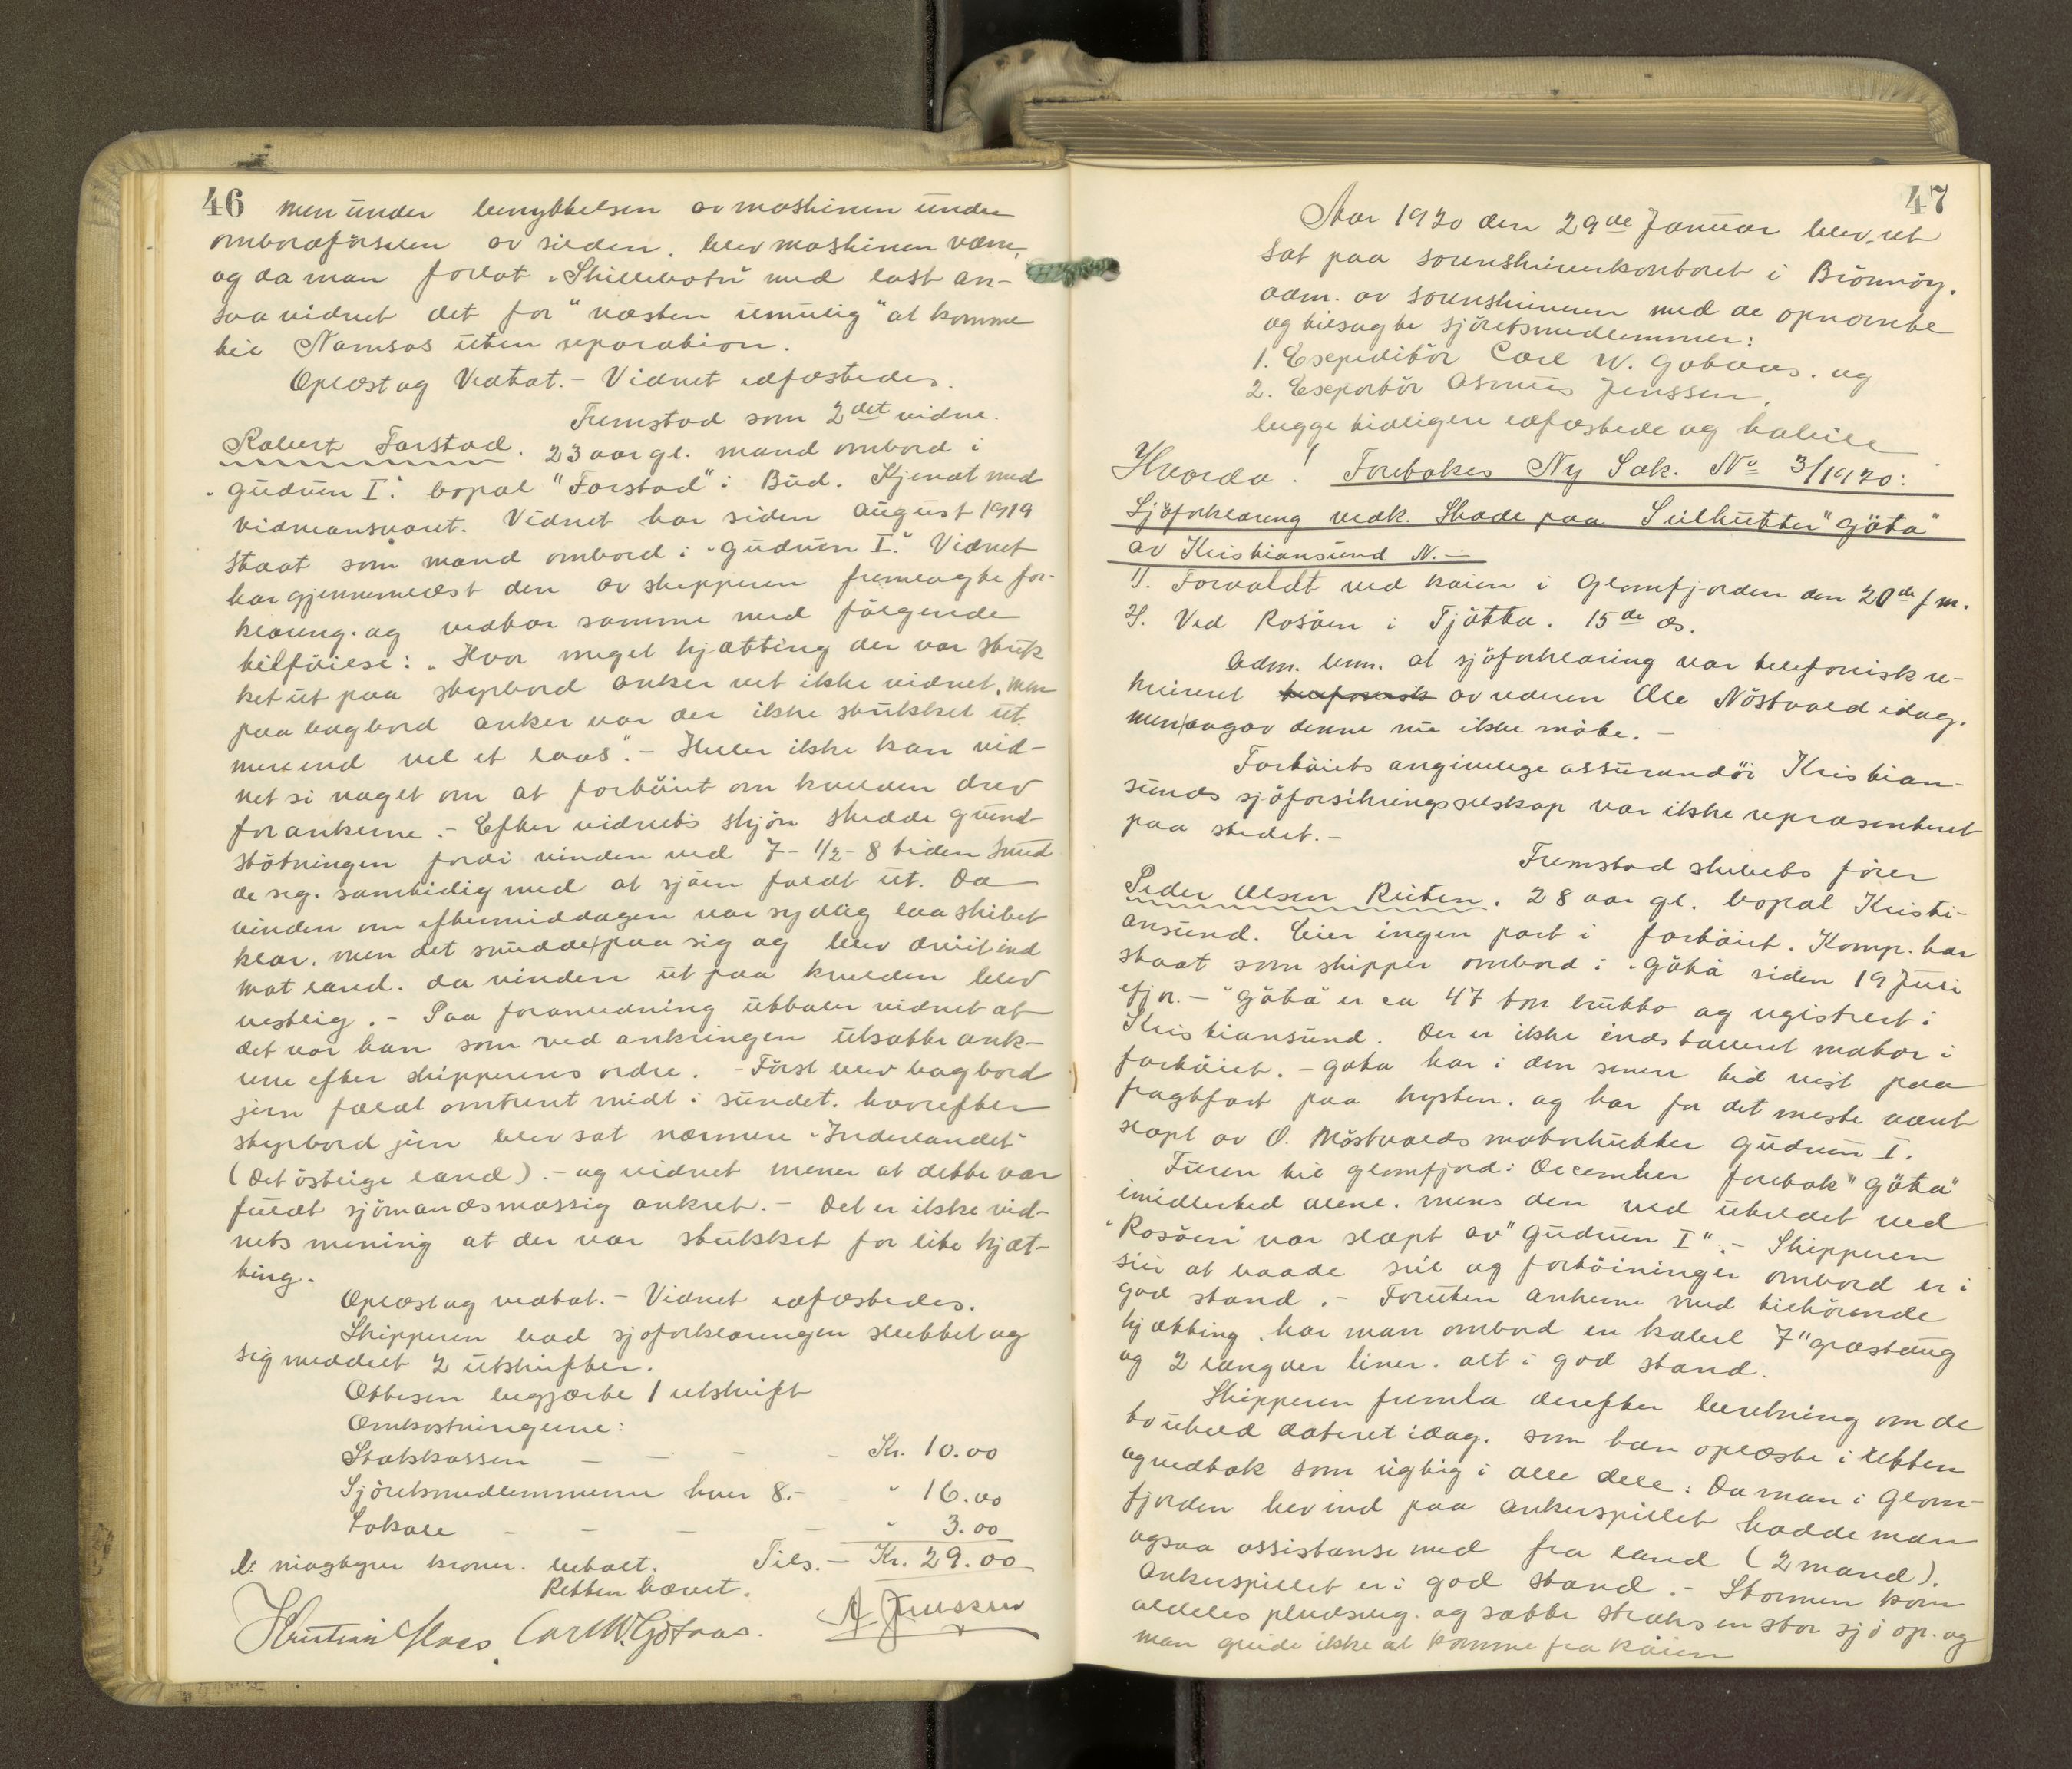 46 men under benyttelsen av maskinen under
ombordførselen av silden, blev maskinen værre,
og da man forlot "Skillebotn" med last an-
saa vidnet det for "næsten umulig" at komme
til Namsos uten reparation.
Oplæst og Vedtat. – Vidnet edfæstedes.
Fremstod som 2det vidne.
Robert Farstad. 23 aar gl. mand ombord i
"Gudrun I". bopæl "Farstad" i Bud. Kjendt med
vidneansvaret. Vidnet har siden august 1919
staat som mand ombord i "Gudrun I." Vidnet
har gjennemlæst den av skipperen fremlagte for-
klaring. og vedtar samme med følgende
tilføielse: "Hvor meget kjætting der var stuk-
ket ut paa styrbord anker vet ikke vidnet, men
paa bagbord anker var der ikke stukket ut
mere end vel et laas". – Heller ikke kan vid-
net si noget om at fartøiet om kvelden drev
for ankerne. – Efter vidnets skjøn skedde grund-
støtningen fordi vinden ved 7-1/2-8 tiden snud-
de seg. samtidig med at sjøen faldt ut. Da
vinden om eftermiddagen var sydlig laa skibet
klar, men det snudde paa sig og blev drevit ind
mot land. da vinden ut paa kvelden blev
vestlig. – Paa foranledning uttaler vidnet at
det var han som ved ankringen utsatte ank-
rene efter skipperens ordre. – Først blev bagbord
jern fældt omtrent midt i sundet. hvorefter
styrbord jern blev sat nærmere "Inderlandet"
(det østlige land). – og vidnet mener at dette var
fuldt sjømandsmæssig ankret. – Det er ikke vid-
nets mening at der var stukket for lite kjæt-
ting.
Oplæst og vedtat. – Vidnet edfæstedes.
Skipperen bad sjøforklaringen sluttet og
sig meddelt 2 utskrifter.
Ottesen begjærte 1 utskrift
Omkostningerne:
Statskassen – – – – Kr. 10.00
Sjøretsmedlemmerne hver 8.– – " 16.00
Lokale – – – – " 3.00
Tils. – Kr. 29.00
D: niogtyve kroner. betalt.
Retten hævet.
Kristian Carl W. Gøtaas. A Jenssen
47
Aar 1920 den 29de Januar blev ret
sat paa sorenskriverkontoret i Brønnøy.
adm. av sorenskriveren med de opnævnte
og tilsagte sjøretsmedlemmer:
1. Expeditør Carl W. Gøtaas. og
2. Exportør Asmus Jenssen,
begge tidligere edfæstede og habile
Hvorda! Foretokes Ny Sak. No 3/1920:
Sjøforklaring vedk. Skade paa Seilkutter "Gøta"
av Kristiansund N. –
1). Forvoldt ved kaien i Glomfjorden den 20de f m.
2). Ved Rosøen i Tjøtta. 15de ds.
Adm. bem. at sjøforklaring var telefonisk re-
kvireret telefonisk av rederen Ole Nøstvold idag.
men angav denne nu ikke møte. –
Fartøiets angivelige assurandør Kristian-
sunds sjøforsikringsselskap var ikke repræsenteret
paa stedet. –
Fremstod skibets fører
Peder Olsen Reiten. 28 aar gl. bopæl Kristi-
ansund. Eier ingen part i fartøiet. Komp. har
staat som skipper ombord i "Gøta" siden 19 Juli
ifjor. – "Gøta" er ca 47 ton brutto og registrert i
Kristiansund. Der er ikke indstalleret motor i
fartøiet. – Gøta har i den senere tid reist paa
fragtfart paa kysten. og har for det meste været
slæpt av O. Nøstvolds motorkutter Gudrun I.
Turen til Glomfjord i December foretok "Gøta"
imidlertid alene. mens den ved uheldet ved
"Rosøen" var slæpt av "Gudrun I". – Skipperen
sier at baade seil og fortøininger ombord er i
god stand. – Foruten ankerne med tilhørende
kjætting. har man ombord en kabel 7" græstaug
og 2 længder liner. alt i god stand.
Skipperen fremla derefter beretning om de
to uheld dateret idag. som han oplæste i retten
og vedtok som rigtig i alle dele: Da man i Glom-
fjorden hev ind paa ankerspillet hadde man
ogsaa assistanse med fra land (2 mand).
Ankerspillet er i god stand. – Stormen kom
aldeles pludselig. og satte straks en stor sjø op. og
man greide ikke at komme fra kaien